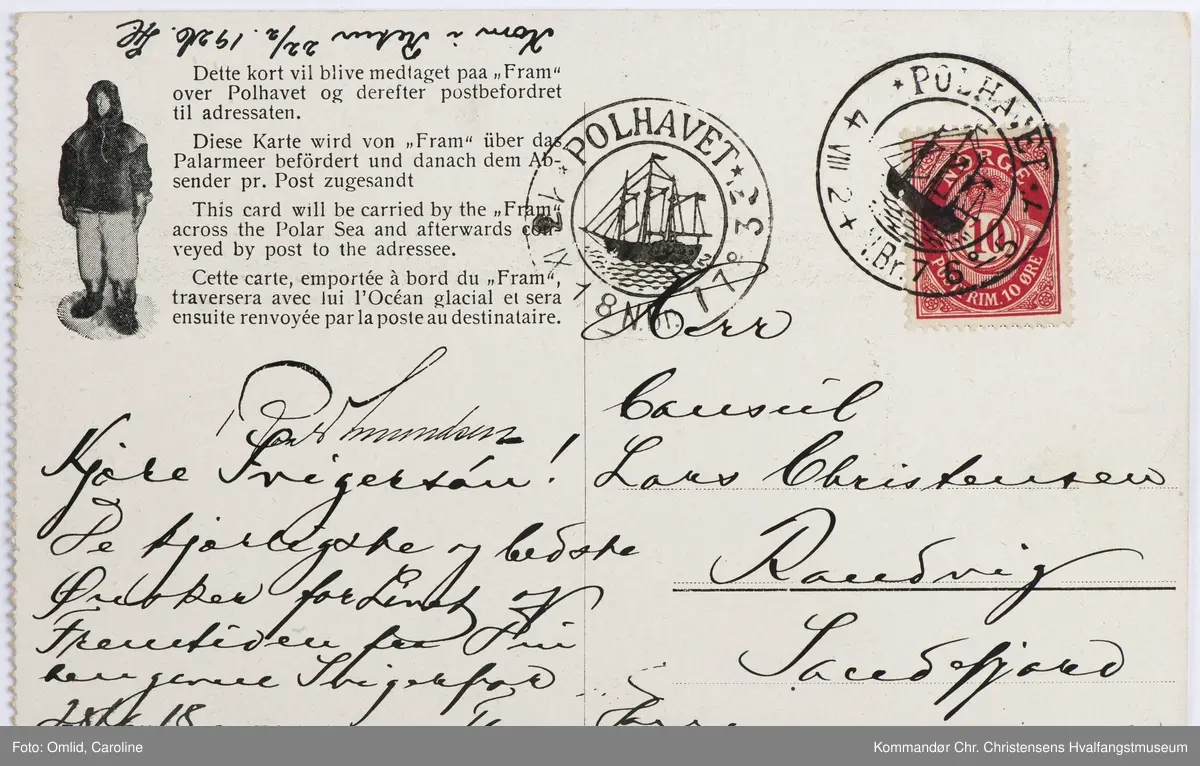 Kom i Retur 22/2. 1926.
Dette kort vil blive medtaget paa „Fram“
over Polhavet og derefter postbefordret
til adressaten.
Diese Karte wird von „Fram“ über das
Palarmeer befördert und danach dem Ab-
sender pr. Post zugesandt
This card will be carried by the „Fram“
across the Polar Sea and afterwards con-
veyed by post to the adressee.
Cette carte, emportée à bord du „Fram“,
traversera avec lui l’Océan glacial et sera
ensuite renvoyée par la poste au destinataire.
POLHAVET
POLHAVET
4 VIII 2
NORGE
10
FRIM. 10 ØRE
Roald Amundsen
Kjære Svigersøn!
De kjærligste og bedste
Ønsker for Livet og
Fremtiden fra Din
hengivne Svigerfar
Herr
Consul
Lars Christensen
Randvig
Sandefjord
Foto: Omlid, Caroline
Kommandør Chr. Christensens Hvalfangstmuseum